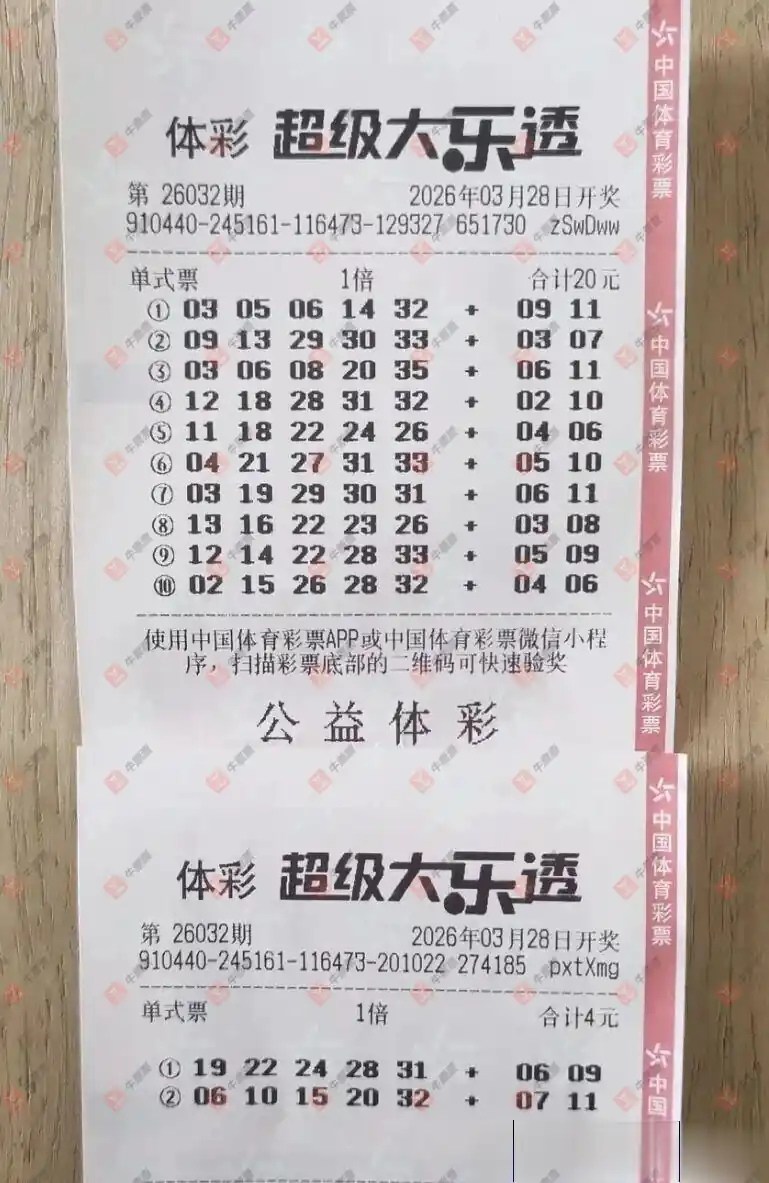 体彩 超级大乐透
第 26032期 2026年03月28日开奖
910440-245161-116473-129327 651730 zSwDww
单式票 1倍 合计20元
① 03 05 06 14 32 + 09 11
② 09 13 29 30 33 + 03 07
③ 03 06 08 20 35 + 06 11
④ 12 18 28 31 32 + 02 10
⑤ 11 18 22 24 26 + 04 06
⑥ 04 21 27 31 33 + 05 10
⑦ 03 19 29 30 31 + 06 11
⑧ 13 16 22 23 26 + 03 08
⑨ 12 14 22 28 33 + 05 09
⑩ 02 15 26 28 32 + 04 06
使用中国体育彩票APP或中国体育彩票微信小程
序，扫描彩票底部的二维码可快速验奖
公益体彩
中国体育彩票
中国体育彩票
中国体育彩票
体彩 超级大乐透
第 26032期 2026年03月28日开奖
910440-245161-116473-201022 274185 pxtXmg
单式票 1倍 合计4元
① 19 22 24 28 31 + 06 09
② 06 10 15 20 32 + 07 11
中国体育彩票
中国